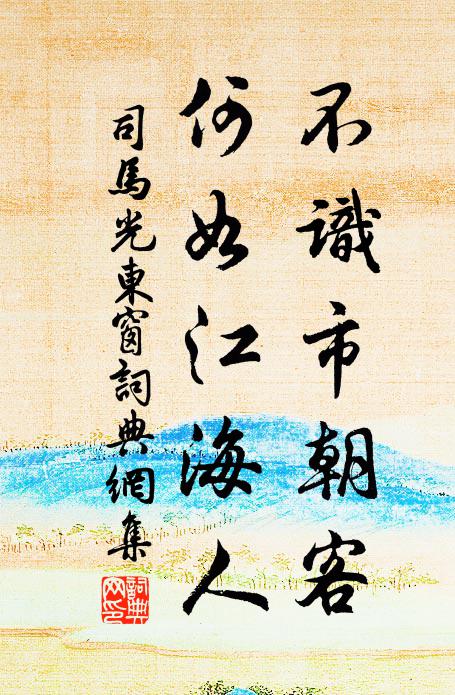 不識市朝客
何如江海人
司馬光東窗詞典網集
詞典
网印